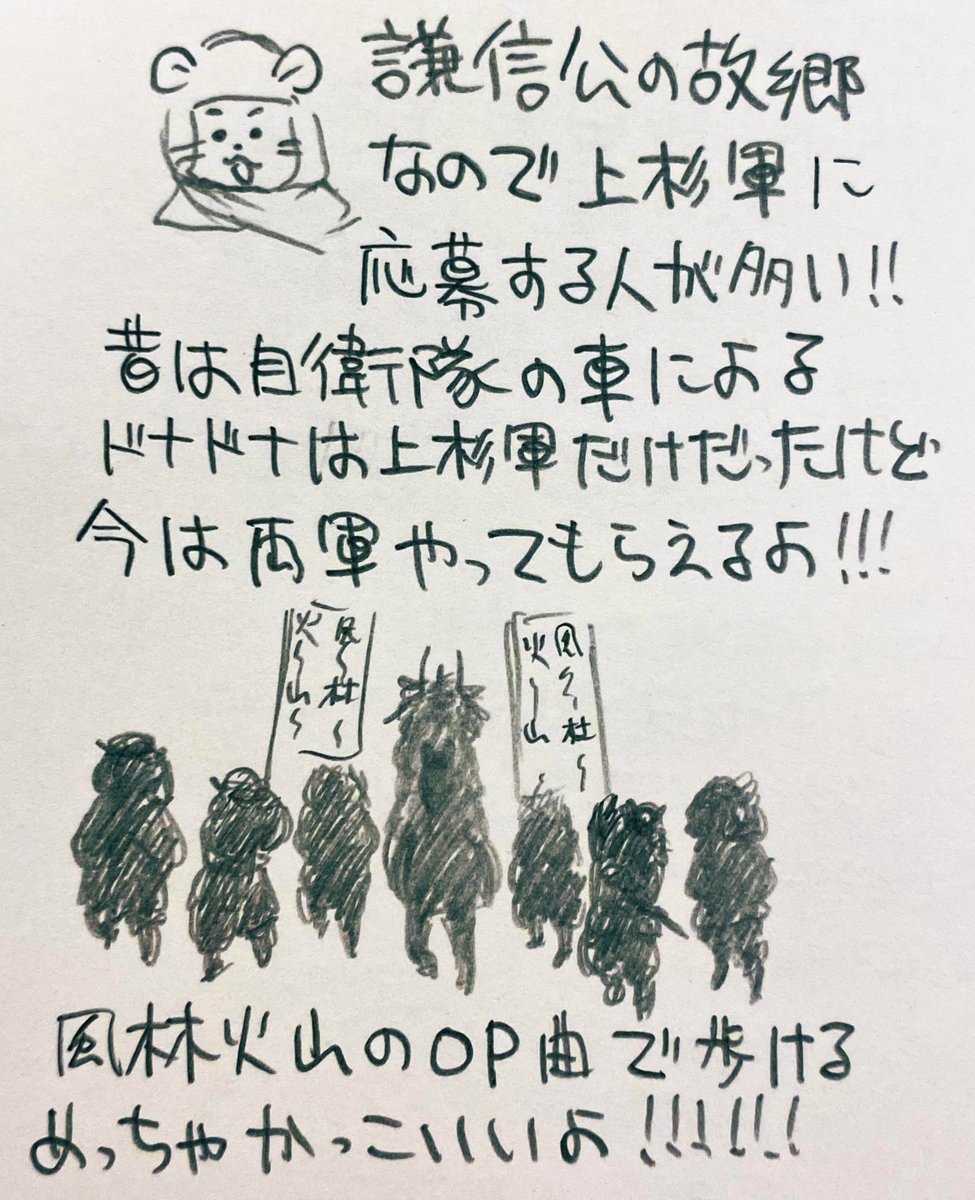 謙信公の故郷
なので上杉軍に
応募する人が多い!!
昔は自衛隊の車による
ドナドナは上杉軍だけだったけど
今は両軍やってもらえるよ!!!
風〜林〜
火〜山〜
風〜林〜
火〜山
風林火山のOP曲で歩ける
めっちゃかっこいいよ!!!!!!